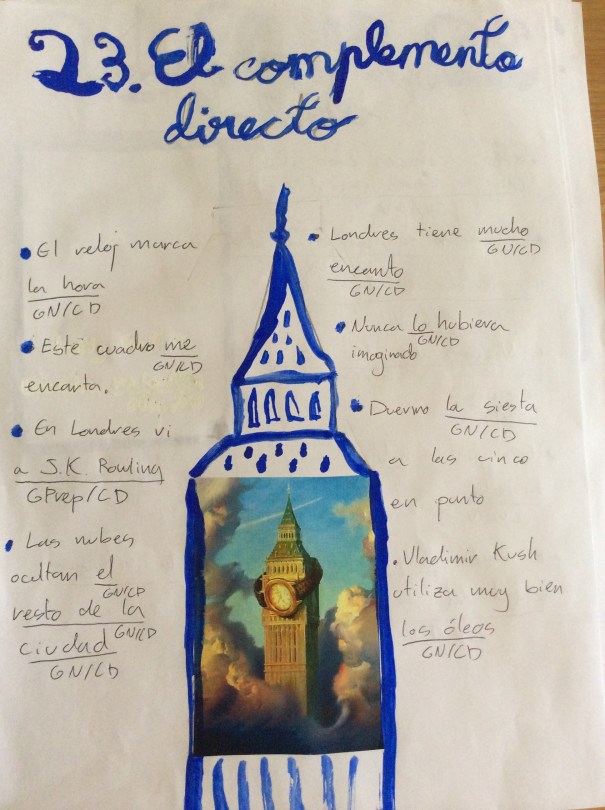 23. El complemento
directo
• El reloj marca
la hora
GN/CD
• Este cuadro me
GN/CD
encanta.
• En Londres vi
a J.K. Rowling
GPrep/CD
• Las nubes
ocultan el
GN/CD
resto de la
GN/CD
ciudad
GN/CD
• Londres tiene mucho
GN/CD
encanto
GN/CD
• Nunca lo hubiera
GN/CD
imaginado
• Duermo la siesta
GN/CD
a las cinco
en punto
• Vladimir Kush
utiliza muy bien
los óleos
GN/CD